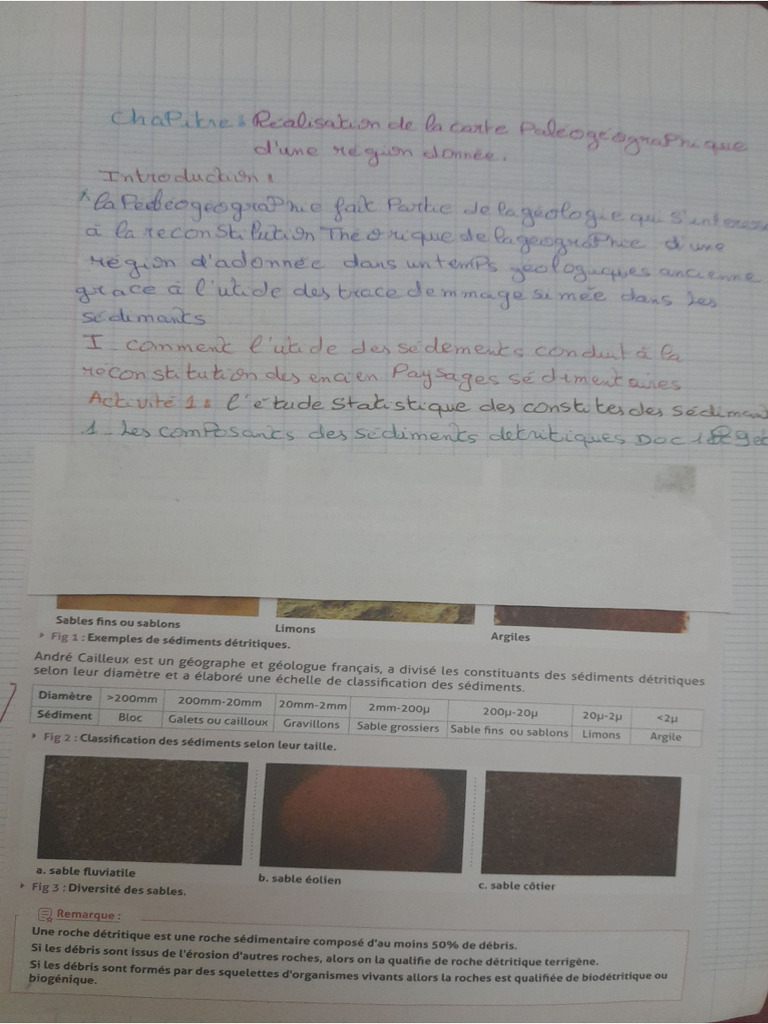 Chapitre : Réalisation de la carte Paléogéographique
d'une région donnée.
Introduction :
la Paléogéographie fait Partie de la géologie qui s'interesse
à la reconstitution Théorique de la géographie d'une
région d'adonnée dans un temps géologuques ancienne
grace à l'utide des trace demmagasimée dans les
sédimants
I - comment l'utide des sédements conduit à la
réconstitution des encien Paysages sédimentaires
Activité 1 : l'étude statistique des constites des sédiment
1 - les composants des sédiments detritiques Doc 1
Sables fins ou sablons
Limons
Argiles
Fig 1 : Exemples de sédiments détritiques.
André Cailleux est un géographe et géologue français, a divisé les constituants des sédiments détritiques
selon leur diamètre et a élaboré une échelle de classification des sédiments.
Diamètre >200mm 200mm-20mm 20mm-2mm 2mm-200µ 200µ-20µ 20µ-2µ <2µ
Sédiment Bloc Galets ou cailloux Gravillons Sable grossiers Sable fins ou sablons Limons Argile
Fig 2 : Classification des sédiments selon leur taille.
a. sable fluviatile
b. sable éolien
c. sable côtier
Fig 3 : Diversité des sables.
Remarque :
Une roche détritique est une roche sédimentaire composé d'au moins 50% de débris.
Si les débris sont issus de l'érosion d'autres roches, alors on la qualifie de roche détritique terrigène.
Si les débris sont formés par des squelettes d'organismes vivants allors la roches est qualifiée de biodétritique ou
biogénique.